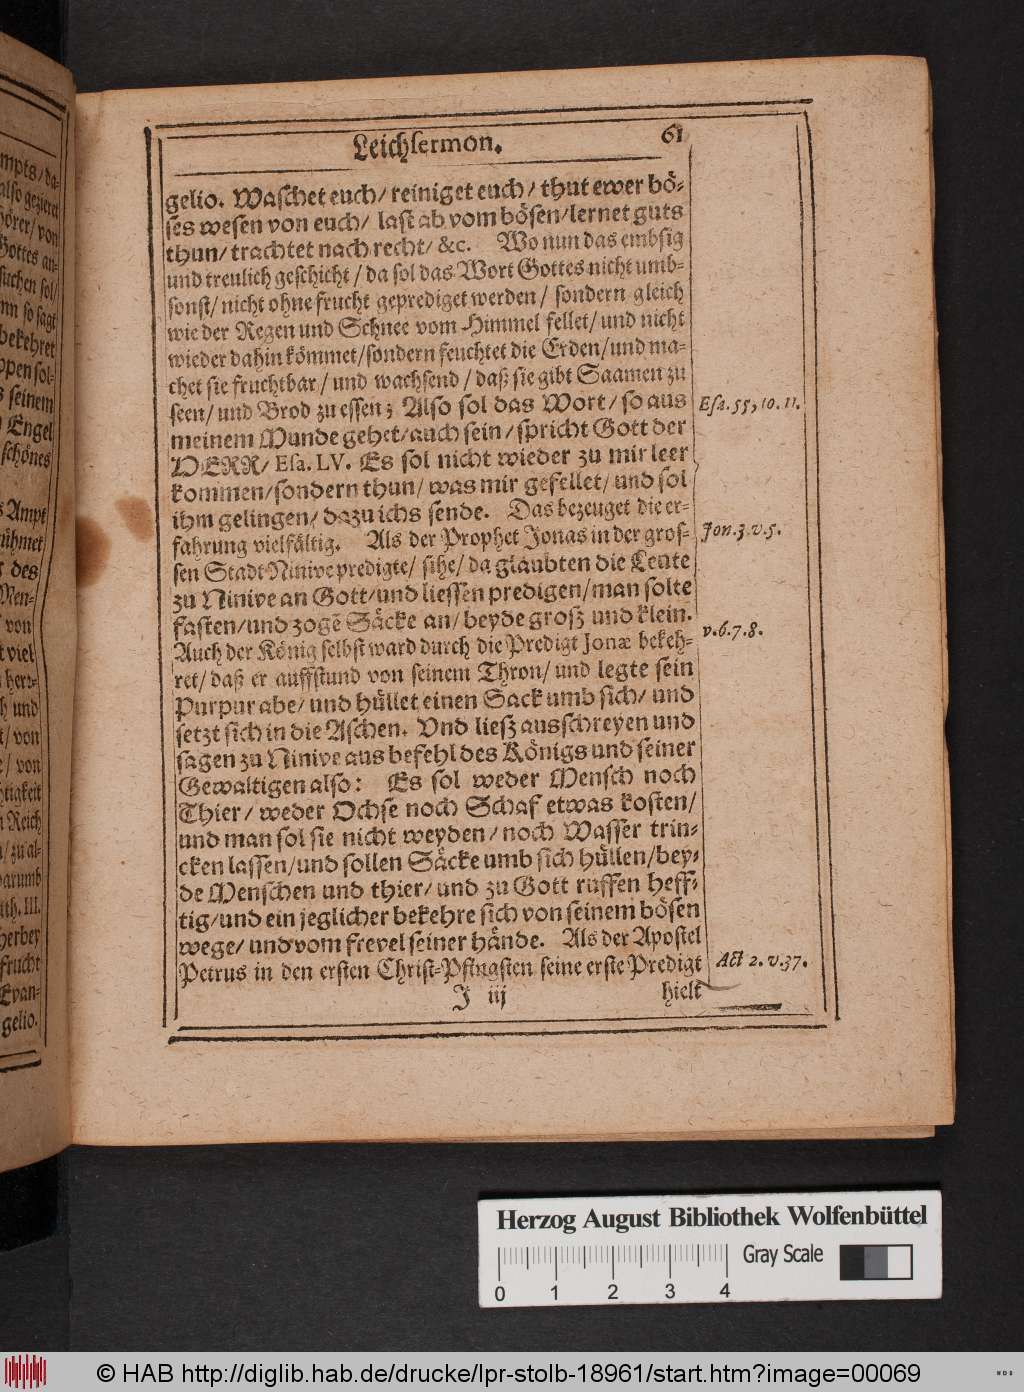 mpts/da-
also gezieret
hörer/von
Gottes an-
suchen sol/
nn so sagt
bekehret
ppen sol-
s seinem
Engel
schönes
s Ampt
rühmet
des
Men-
von
t viel
herr-
h und
t/von
e/von
htigkeit
n Reich
n/zu al-
darumb
ath. III.
herbey
frucht
Evan-
gelio.
Leichsermon. 61
gelio. Waschet euch/reiniget euch/thut ewer bö-
ses wesen von euch/ last ab vom bösen/lernet guts
thun/trachtet nach recht/&c. Wo nun das embsig
und treulich geschicht/da sol das Wort Gottes nicht umb-
sonst/nicht ohne frucht geprediget werden/ sondern gleich
wie der Regen und Schnee vom Himmel fellet/und nicht
wieder dahin kömmet/sondern feuchtet die Erden/und ma-
chet sie fruchtbar/und wachsend/daß sie gibt Saamen zu
seen/und Brod zu essen; Also sol das Wort/so aus
Esa. 55, 10. 11.
meinem Munde gehet/auch sein/spricht Gott der
HERR/ Esa. LV. Es sol nicht wieder zu mir leer
kommen/sondern thun/was mir gefellet/und sol
ihm gelingen/dazu ichs sende. Das bezeuget die er-
fahrung vielfältig. Als der Prophet Jonas in der gros-
Jon. 3. v. 5.
sen Stadt Ninive predigte/ sihe/da gläubten die Leute
zu Ninive an Gott/und liessen predigen/man solte
fasten/und zogẽ Säcke an/beyde groß und klein.
v. 6. 7. 8.
Auch der König selbst ward durch die Predigt Jonæ bekeh-
ret/daß er auffstund von seinem Thron/und legte sein
Purpur abe/und hüllet einen Sack umb sich/und
setzt sich in die Aschen. Vnd ließ ausschreyen und
sagen zu Ninive aus befehl des Königs und seiner
Gewaltigen also: Es sol weder Mensch noch
Thier/weder Ochse noch Schaf etwas kosten/
und man sol sie nicht weyden/noch Wasser trin-
cken lassen/und sollen Säcke umb sich hüllen/bey-
de Menschen und thier/und zu Gott ruffen heff-
tig/und ein jeglicher bekehre sich von seinem bösen
wege/und vom frevel seiner hände. Als der Apostel
Petrus in den ersten Christ-Pfingsten seine erste Predigt
Act 2. v. 37.
J iij hielt
Herzog August Bibliothek Wolfenbüttel
Gray Scale
0 1 2 3 4
© HAB http://diglib.hab.de/drucke/lpr-stolb-18961/start.htm?image=00069